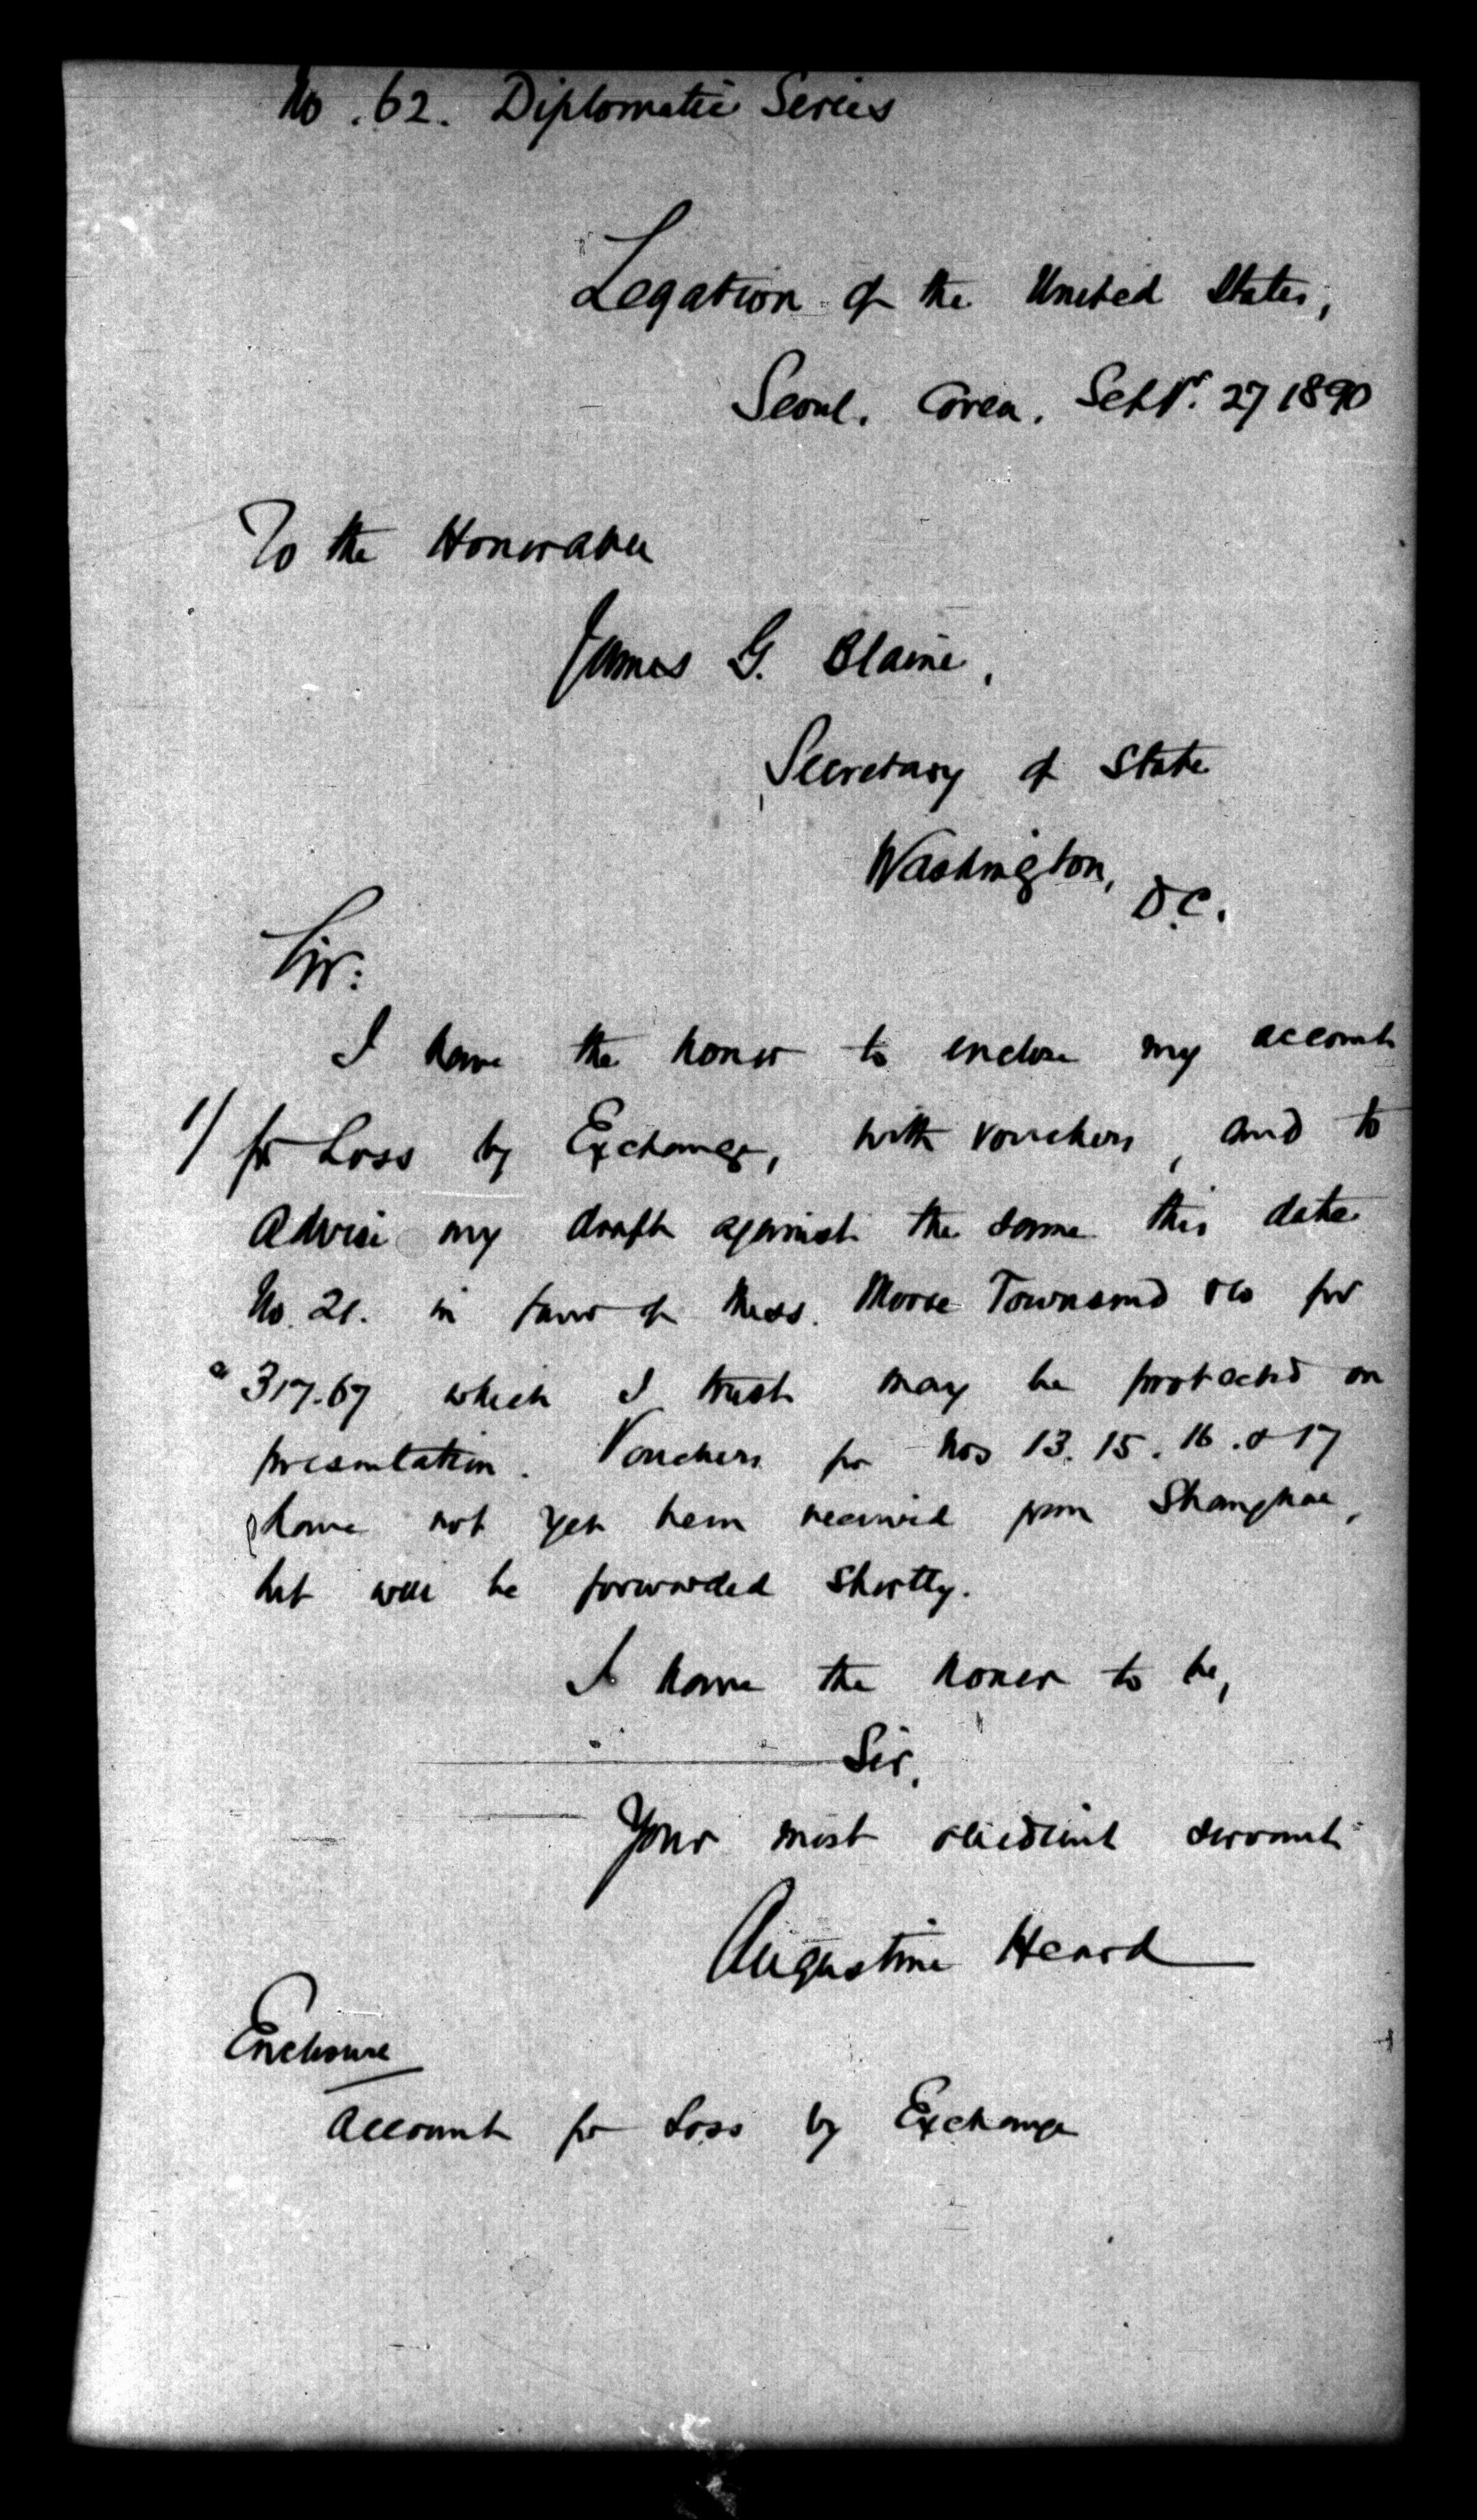 No. 62. Diplomatic Series
Legation of the United States,
Seoul. Corea. Septr. 27 1890
To the Honorable
James G. Blaine,
Secretary of State
Washington,
D.C.
Sir:
I have the honor to enclose my account
1/ for Loss by Exchange, with vouchers, and to
advise my draft against the same this date
No. 21. in favor of Mess. Morse Townsend & Co for
$ 317.67 which I trust may be protected on
presentation. Vouchers for Nos 13. 15. 16. & 17
have not yet been received from Shanghae,
but will be forwarded shortly.
I have the honor to be,
Sir,
Your most obedient servant
Augustine Heard
Enclosure
Account for Loss by Exchange